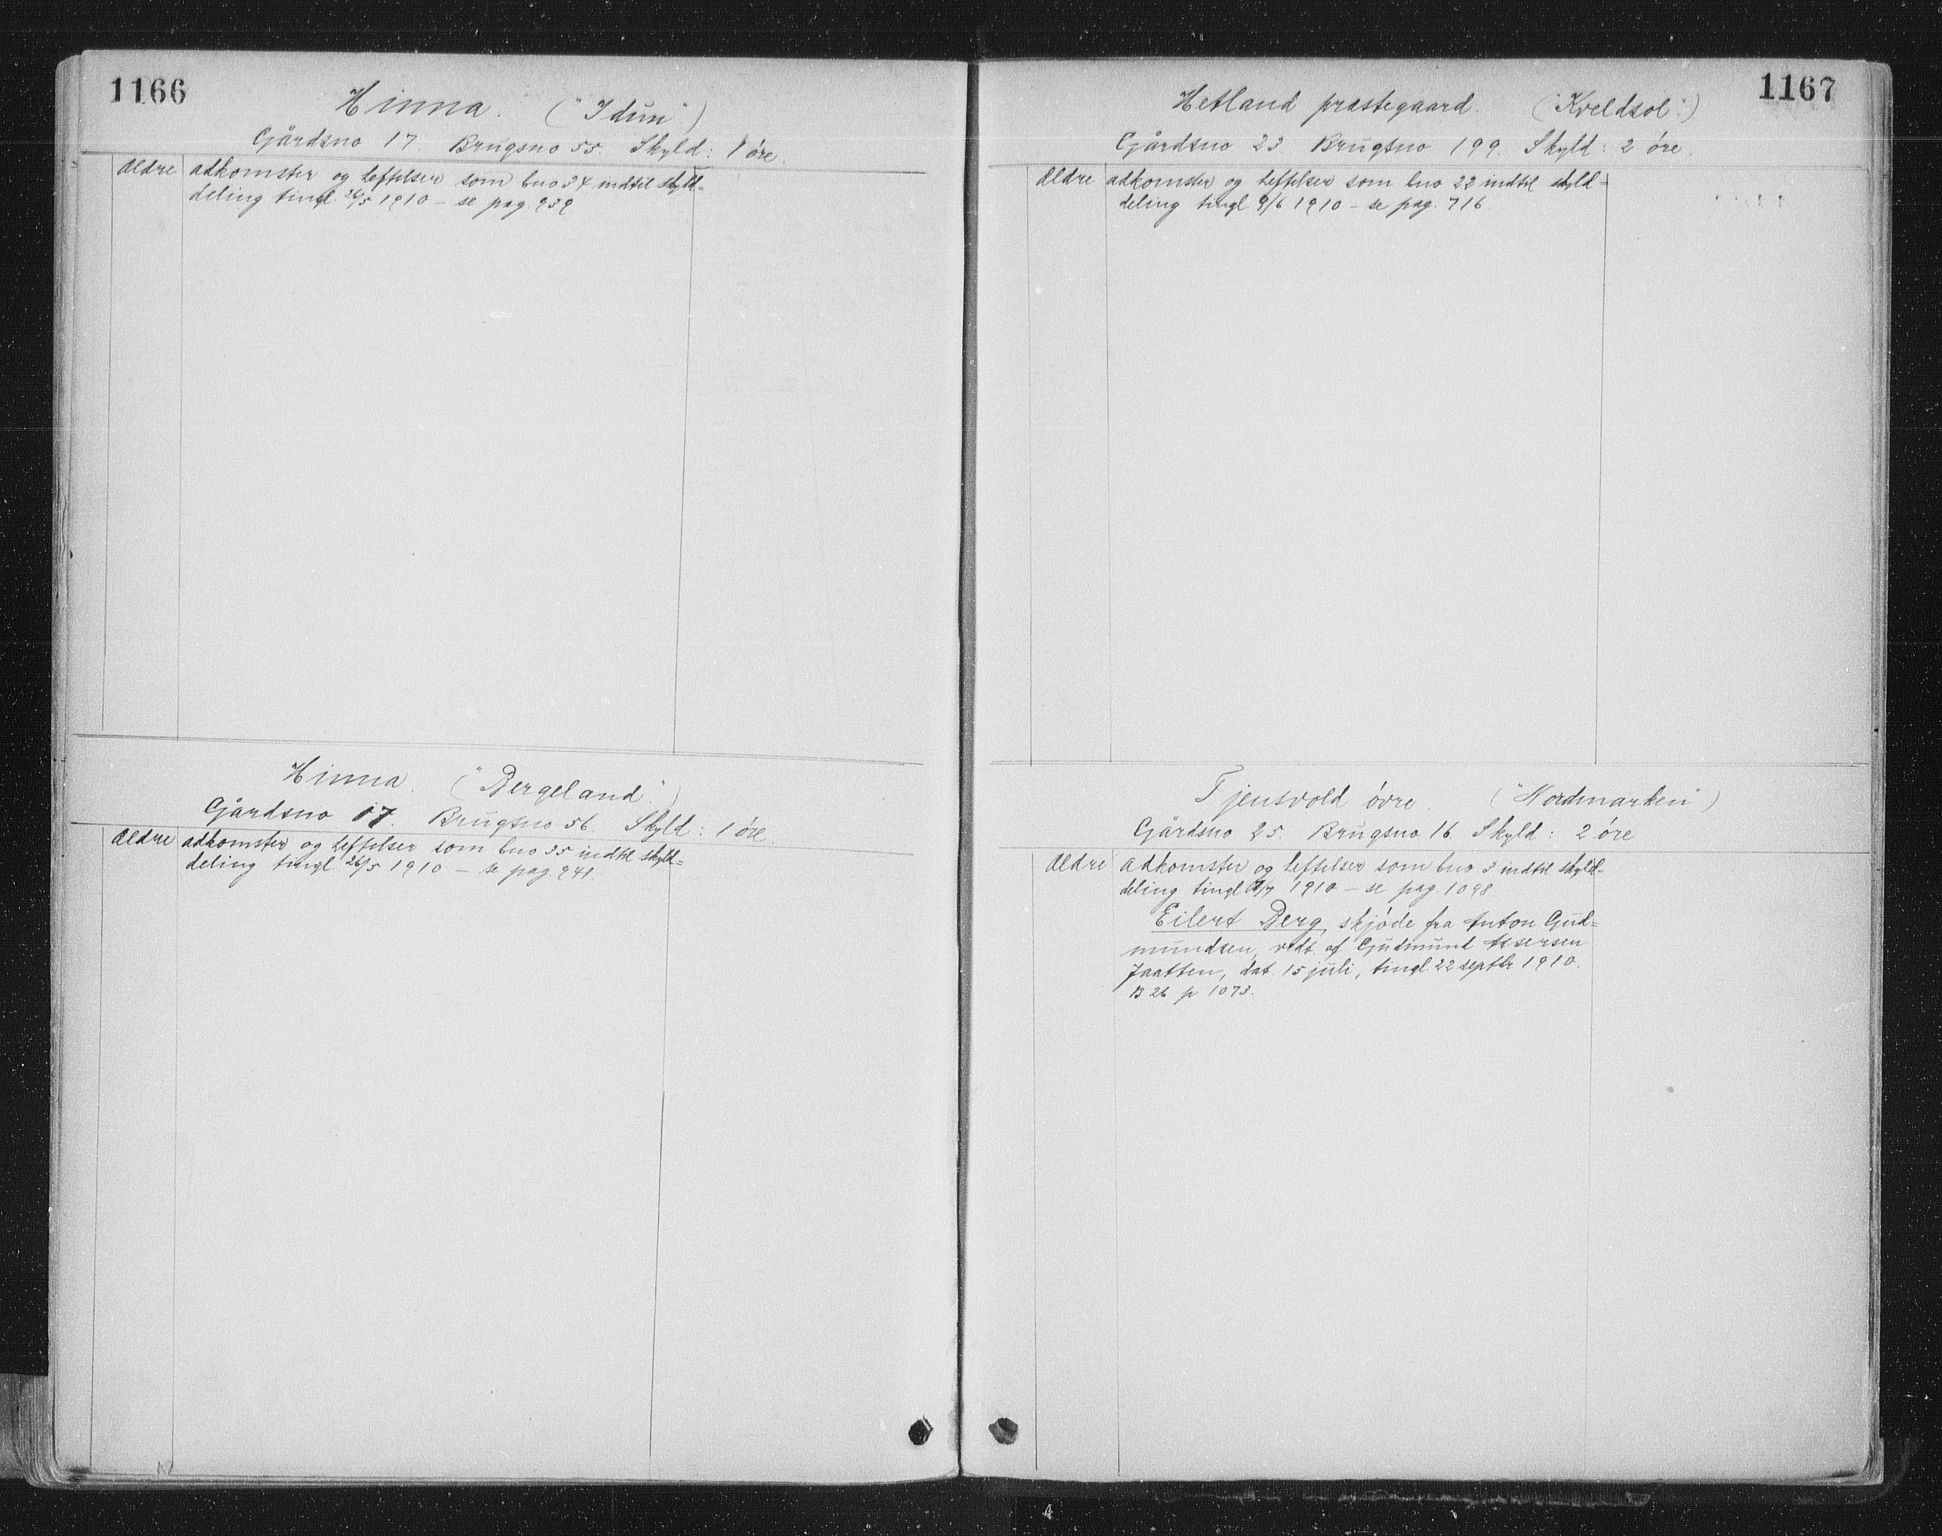 1166
Hinna. ("Idun")
Gårdsno 17. Brugsno 55. Skyld: 1 øre.
Ældre adkomster og heftelser som bno 34 indtil skyld-
deling tingl. 26/5 1910 – se pag. 939
Hinna. ("Bergeland".)
Gårdsno 17. Brugsno 56. Skyld: 1 øre.
Ældre adkomster og heftelser som bno 35 indtil skyld-
deling tingl. 26/5 1910 – se pag. 941.
1167
Hetland præstegaard. ("Kveldsol".)
Gårdsno 23. Brugsno 199. Skyld: 2 øre.
Ældre adkomster og heftelser som bno 22 indtil skyld-
deling tingl. 9/6 1910 – se pag. 716.
Tjensvold øvre. ("Nordmarken")
Gårdsno 25. Brugsno 16. Skyld: 2 øre
Ældre adkomster og heftelser som bno 3 indtil skyld-
deling tingl. 1910 – se pag. 1098
Eilert Berg, skjøde fra Anton Gud-
mundsen, vedt. af Gudmund Assersen
Jaatten, dat. 15 juli, tingl. 22 septbr 1910.
B 26 p 1073.
4